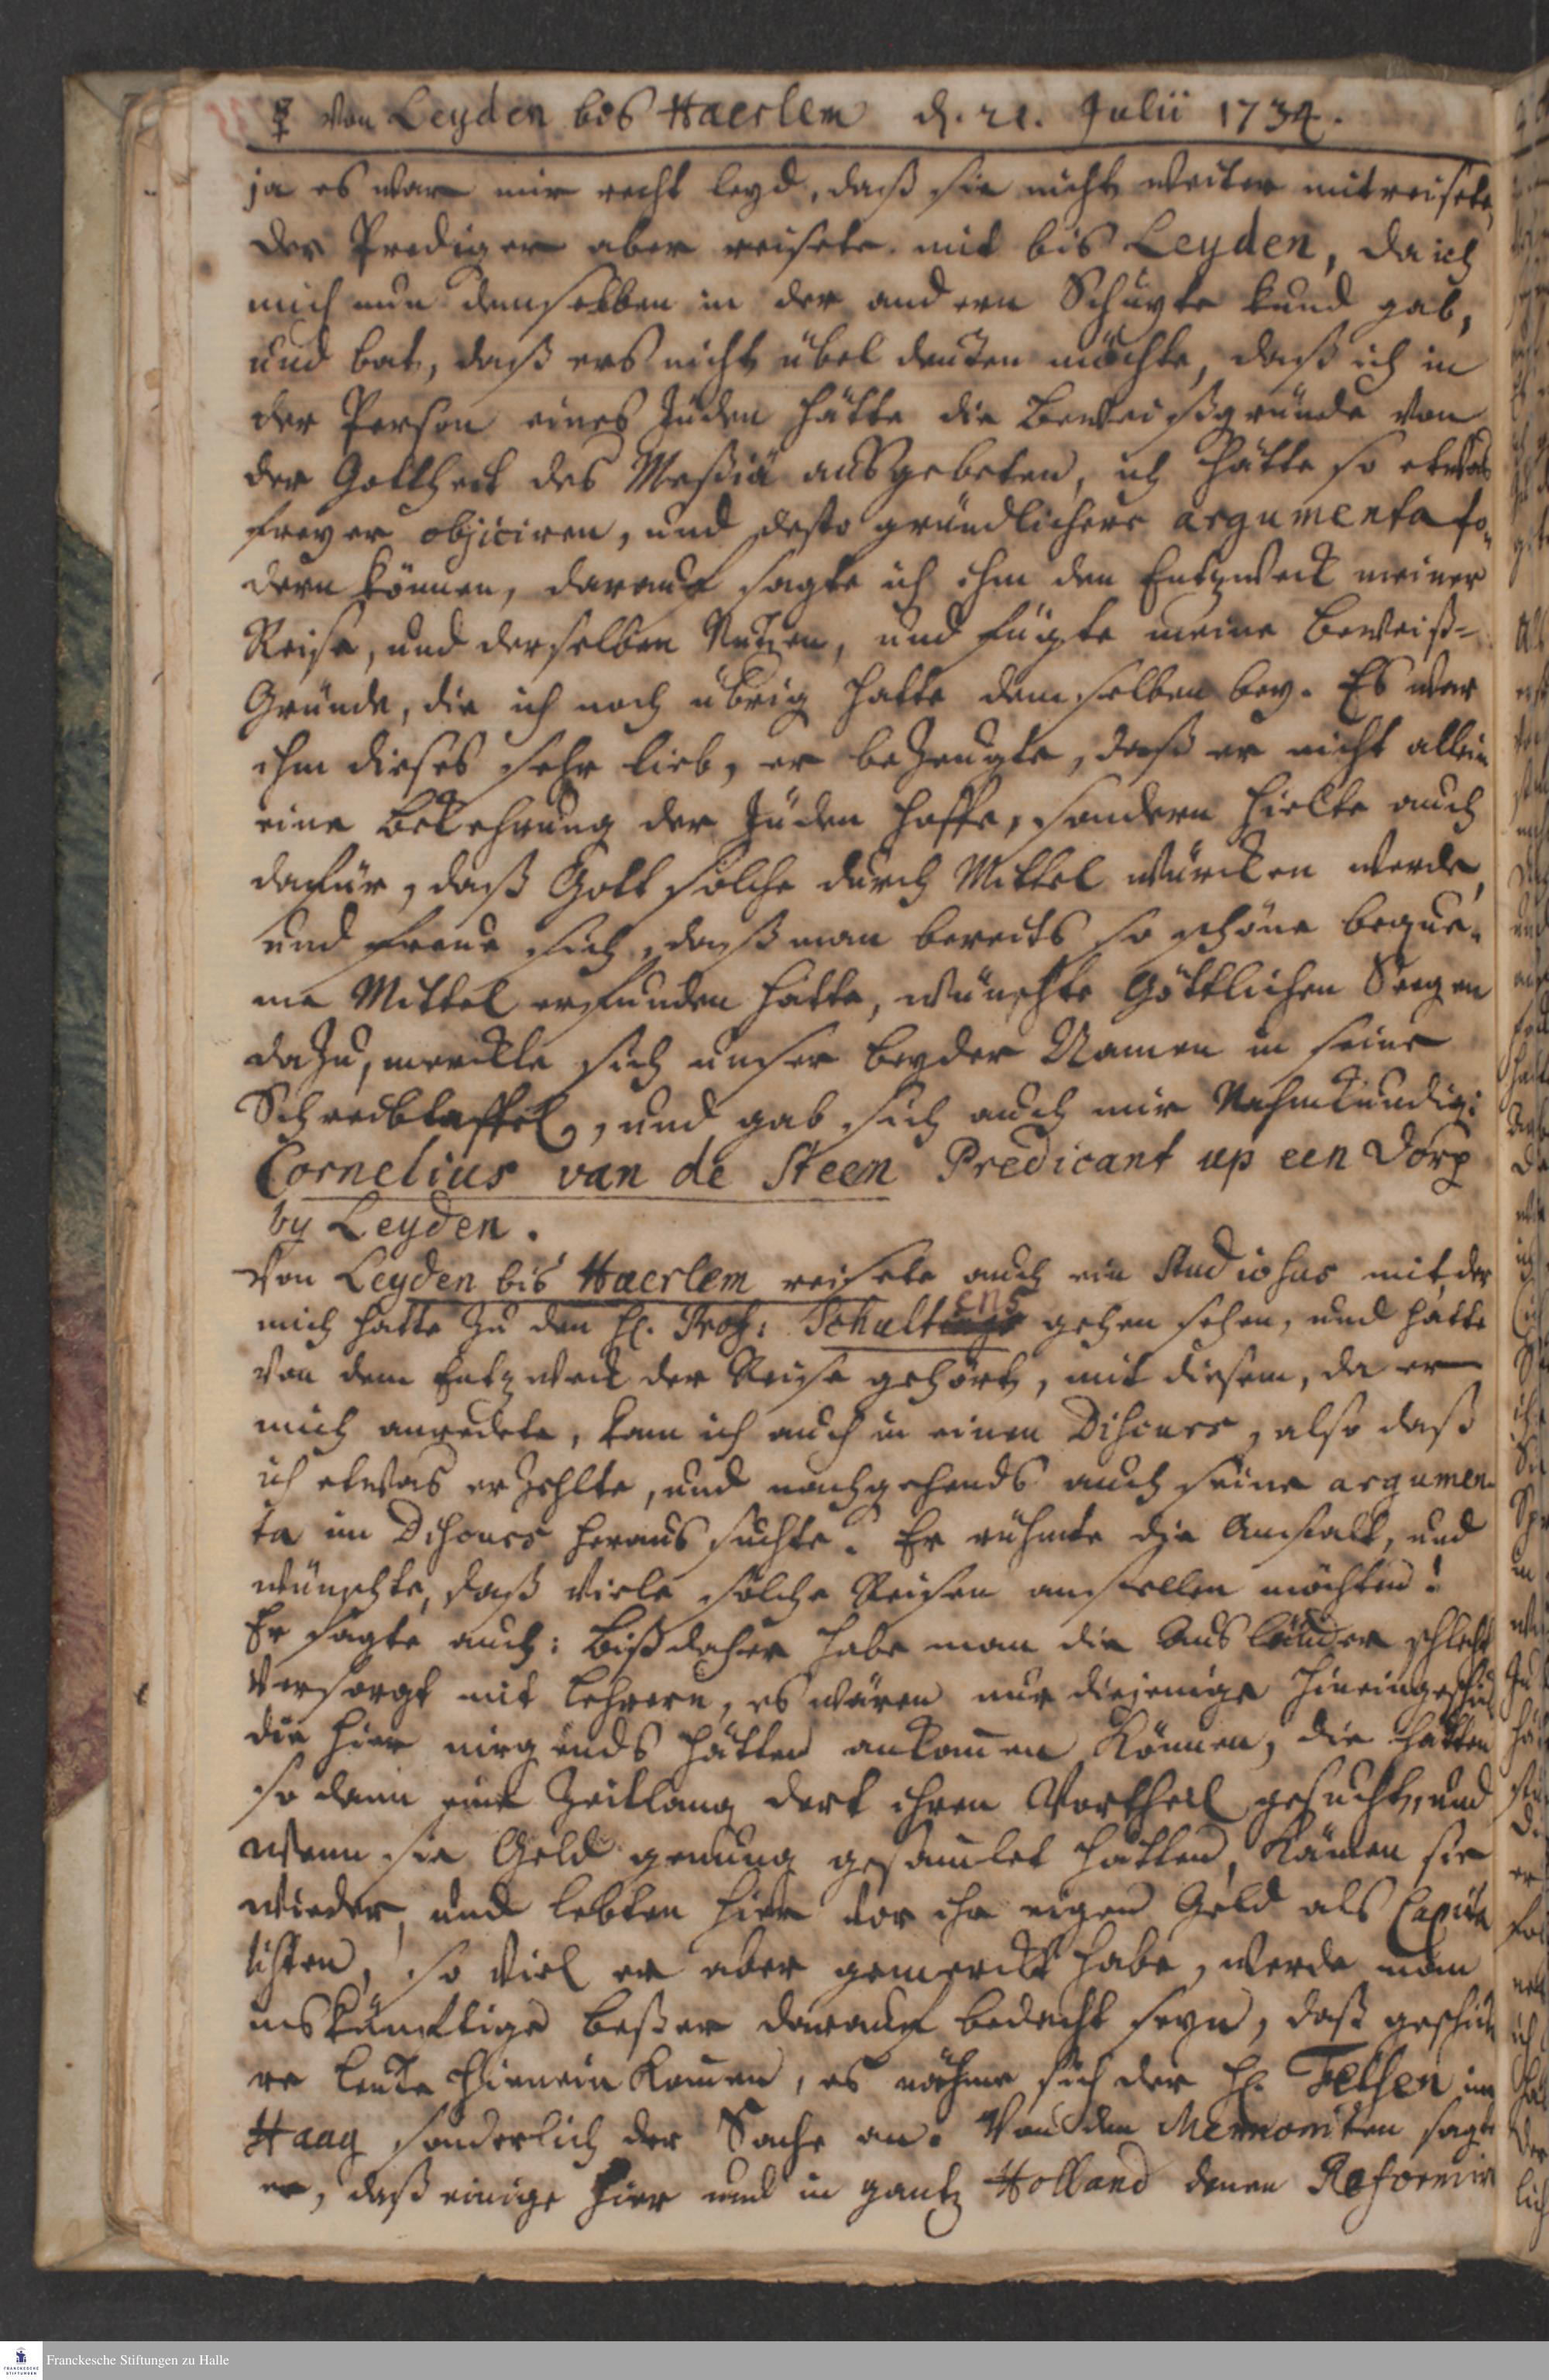 ☿ Von Leyden bis Haerlem d. 21. Julii 1734.
ja es war mir recht leyd, daß sie nicht weiter mitreisete,
der Prediger aber reisete mit bis Leyden, da ich
mich nun demselben in der andern Schuyte kund gab,
und bat, daß ers nicht übel deuten möchte, daß ich in
der Person eines Juden hätte die Beweißgründe von
der Gottheit des Meßiä ausgebeten, ich hätte so etwas
freyer objiciren, und desto gründlichere argumenta fo-
dern können, darauf sagte ich ihm den Entzweck meiner
Reise, und derselben Nutzen, und fügte meine Beweiß-
Gründe, die ich noch übrig hatte demselben bey. Es war
ihm dieses sehr lieb, er bezeugte, daß er nicht allein
eine Bekehrung der Juden hoffe, sondern hielte auch
dafür, daß Gott solche durch Mittel würcken werde,
und freue sich, daß man bereits so schöne beque-
me Mittel erfunden hätte, wünschte Göttlichen Seegen
dazu, merckte sich unser beyder Namen in seine
Schreibtaffel, und gab sich auch mir Nahmkündig:
Cornelius van de Steen Predicant up een Dorp
by Leyden.
Von Leyden bis Haerlem reisete auch ein Studiosus mit, der
mich hatte zu dem H. Prof: Schultens gehen sehen, und hatte
von dem Entzweck der Reise gehört, mit diesem, da er
mich anredete, kam ich auch in einen Discurs, also daß
ich etwas erzehlte, und nachgehends auch seine argumen-
ta im Discurs heraus suchte. Er rühmte die Anstalt, und
wünschte, daß viele solche Reisen anstellen möchten!
Er sagte auch: Bißdaher habe man die Ausländer schlecht
versorgt mit Lehrern, es wären nur diejenige hineingeschickt
die hier nirgends hätten ankommen können, die hätten
so denn eine Zeitlang dort ihren Vortheil gesucht, und
wenn sie Geld genung gesammlet hätten, kämen sie
wieder, und lebten hier vor ihr eigen Geld als Capita
listen, so viel er aber gemerckt habe, werde man
inskünftige beßer darauf bedacht seyn, daß geschickte
re Leute hinein kommen, es nähme sich der H. Velsen im
Haag sonderlich der Sache an. Von den Mennoniten sagte
er, daß einige hier und in gantz Holland denen Reformir
Franckesche Stiftungen zu Halle